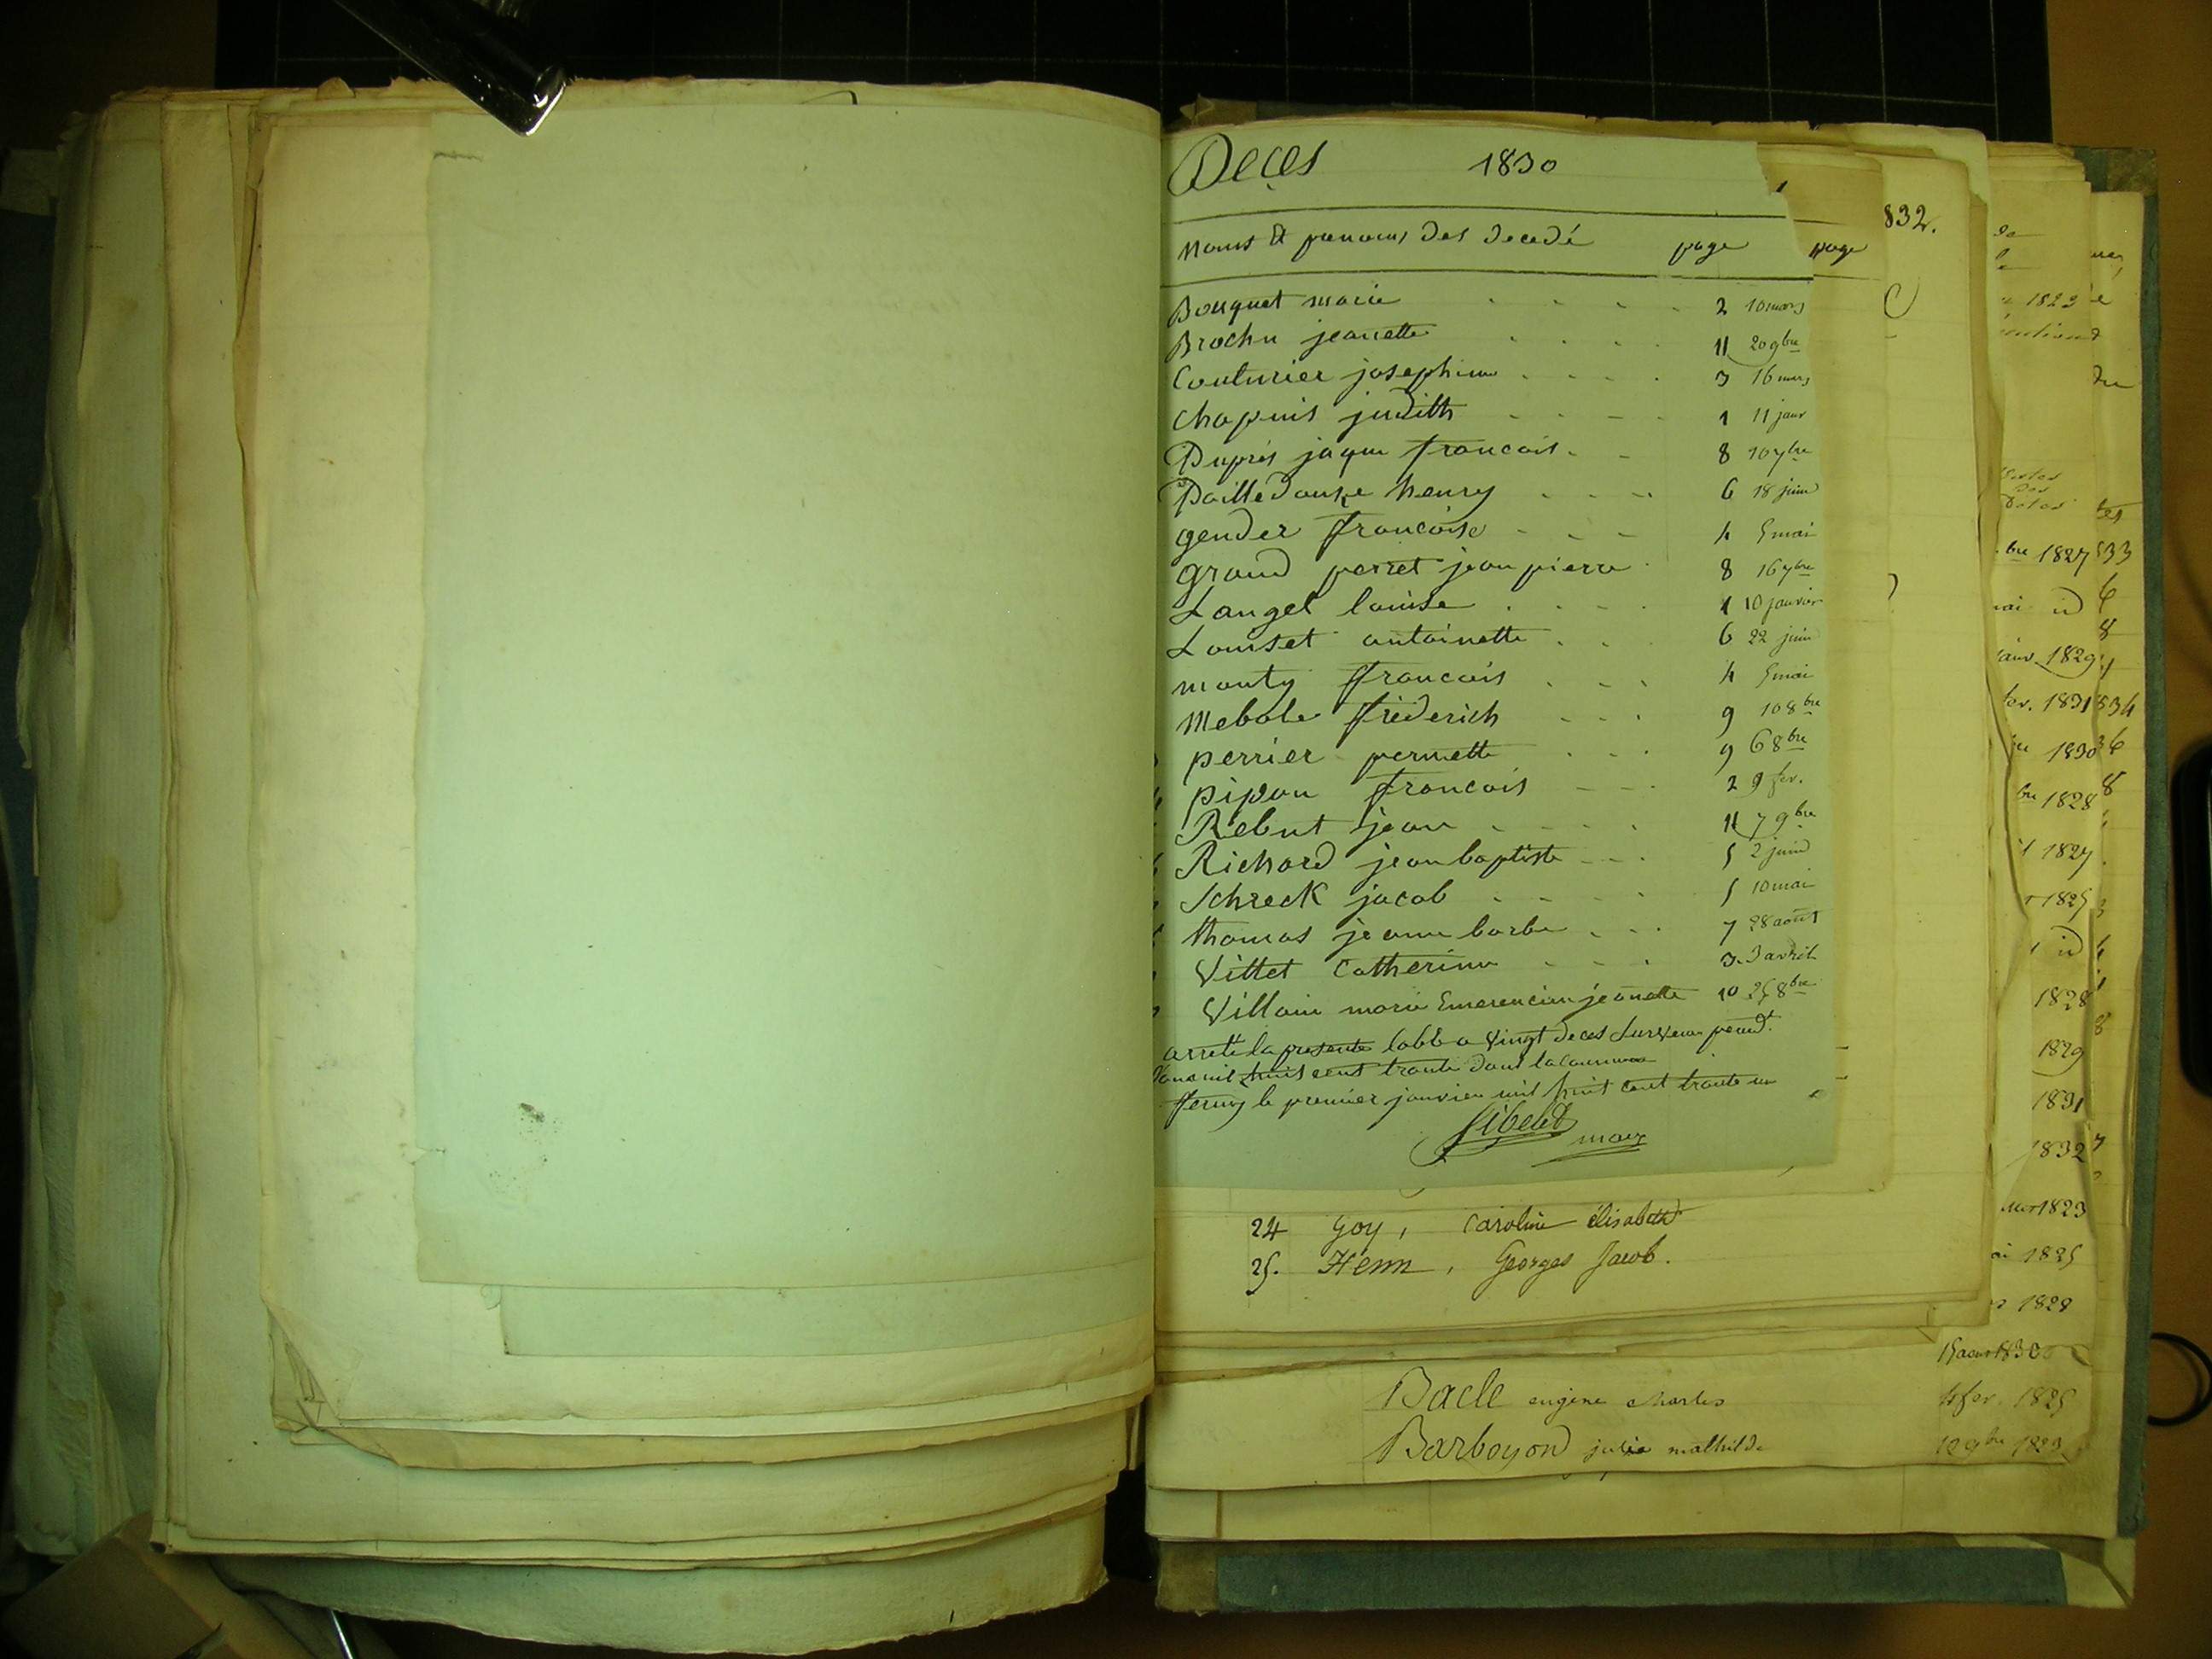 Deces 1830
Noms et prenoms des decedé page
page
832.
Bouquet marie 2 10 mars
Brochu jeanette 11 20 9bre
Couturier josephine 3 16 mars
Chapuis judith 1 11 janv
Duprés jaque francois 8 10 7bre
Dailledouze henry 6 18 juin
gender francoise 4 5 mai
grand perret jean pierre 8 16 7bre
Langel louise 1 10 janvier
Louset antoinette 6 22 juin
monty francois 4 5 mai
Mebole frederich 9 10 8bre
perrier pernette 9 6 8bre
pipon francois 2 9 fev.
Rebut jean 11 7 9bre
Richard jean baptiste 5 2 juin
Schreck jacob 5 10 mai
thomas jeanne barbe 7 28 août
Vittet Catherine 3 3 avril
Villain marie Emerencienne jeanette 10 25 8bre
arrete la presente table a vingt deces survenu pend.t
l'an mil huit cent trente dans la commune
ferney le premier janvier mil huit cent trente un
maire
24 Goy, Caroline élisabeth
25. Henn, Georges Jacob.
Bacle eugène charles 4 fev. 1825
Barboyon julie mathilde 12 9bre 1823
1823
bre 1827
id
janv. 1829
1831
1830
1828
1827
1825
id
1828
1829
1831
1832
1823
1825
1828
15 aout 1830